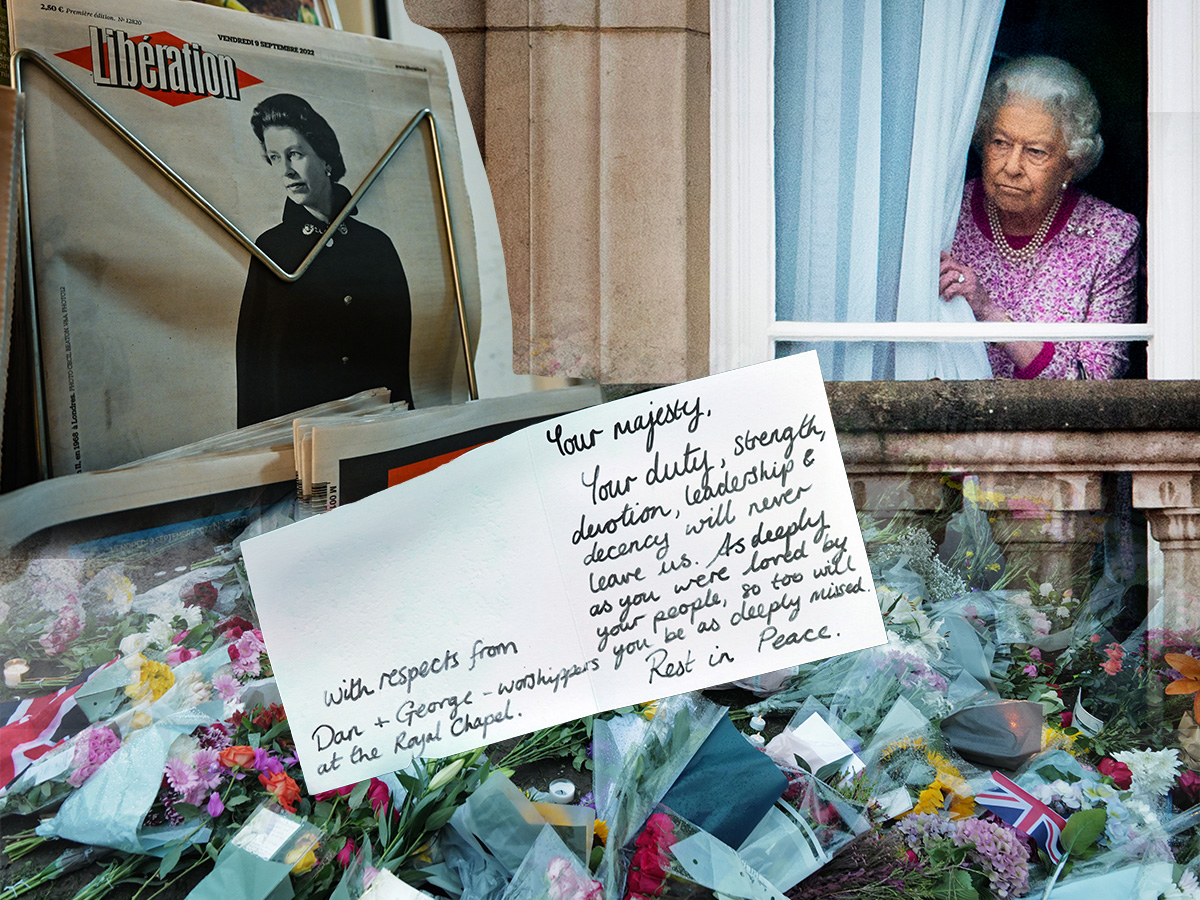 2,50 € Première édition. Nº 12820
VENDREDI 9 SEPTEMBRE 2022
Libération
Your majesty,
Your duty, strength,
devotion, leadership &
decency will never
leave us. As deeply
as you were loved by
your people, so too will
you be as deeply missed.
Rest in Peace.
with respects from
Dan + George - worshippers
at the Royal Chapel.